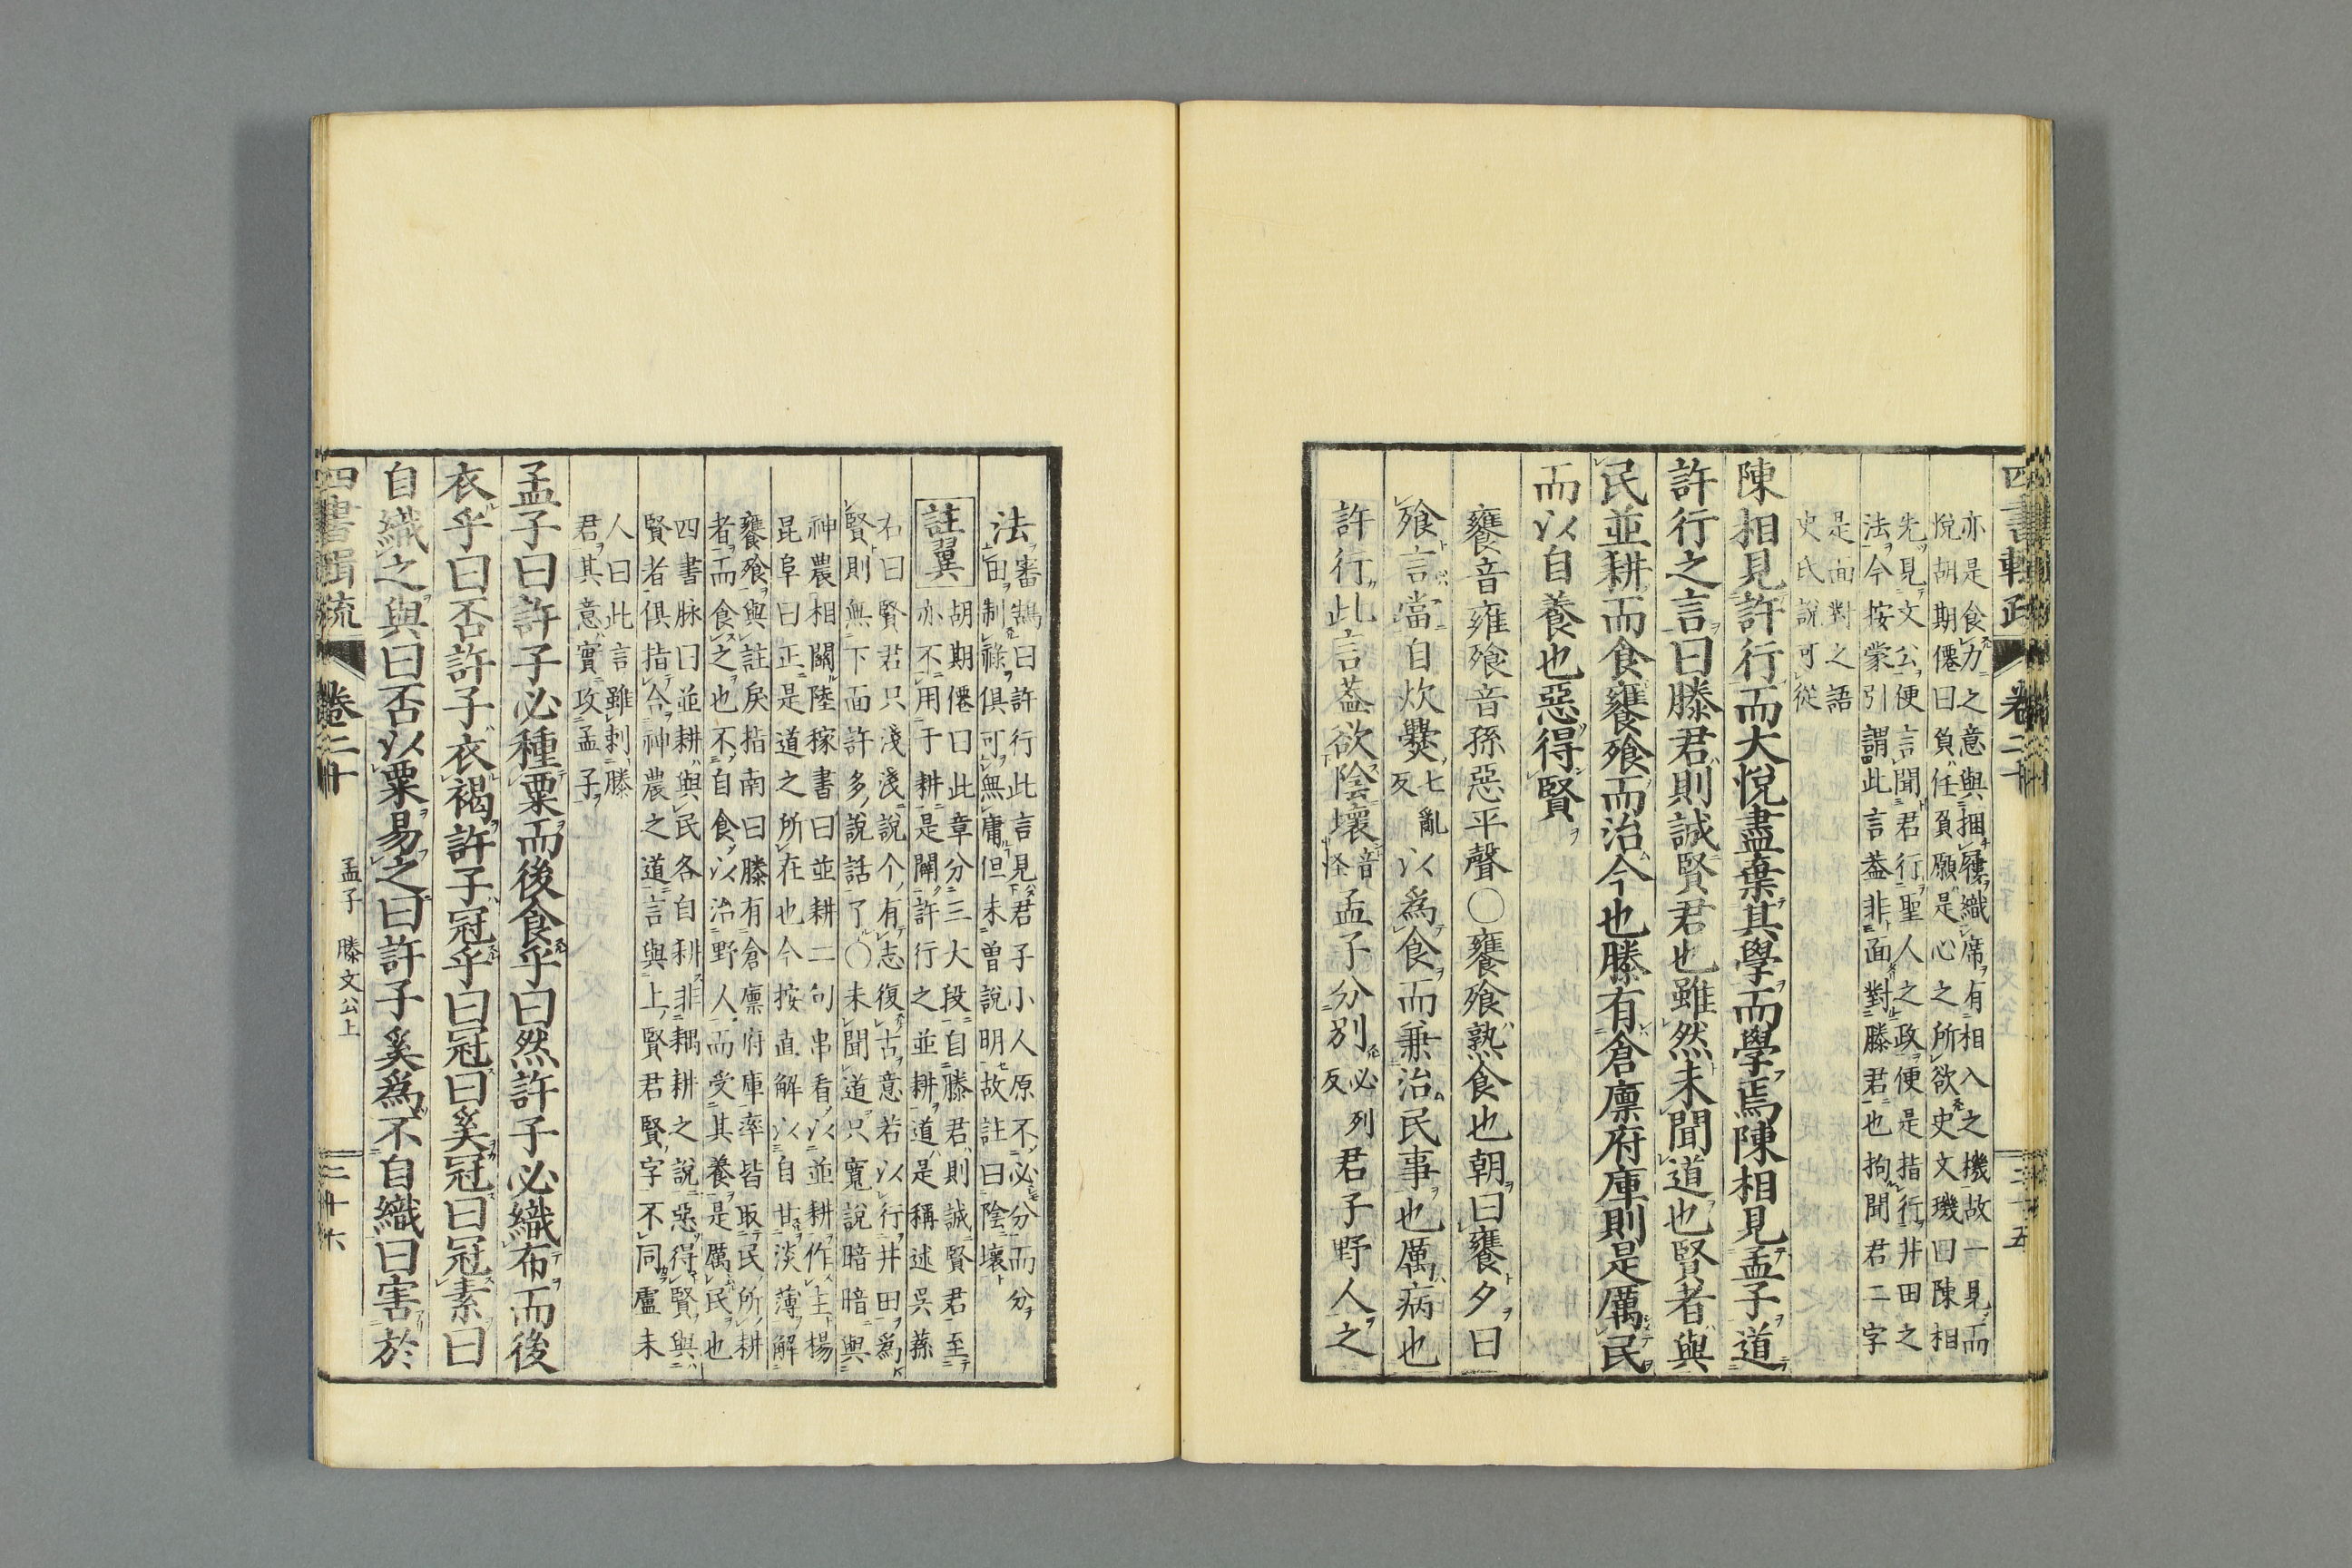 亦是食力之意與捆屨織席有相入之機故一見而
悅胡期僊曰負任負願是心之所欲史文璣曰陳相
先見文公便言聞君行聖人之政便是指行井田之
法今按蒙引謂此言蓋非面對滕君也拘聞君二字
是面對之語
史氏說可從
陳相見許行而大悅盡棄其學而學焉陳相見孟子道
許行之言曰滕君則誠賢君也雖然未聞道也賢者與
民並耕而食饔飧而治今也滕有倉廩府庫則是厲民
而以自養也惡得賢
饔音雍飧音孫惡平聲○饔飧熟食也朝曰饔夕曰
飧言當自炊爨七亂反以為食而兼治民事也厲病也
許行此言蓋欲陰壞音怪孟子分別必列反君子野人之
法
審鵠曰許行此言見君子小人原不必分而分
田制祿俱可無庸但未曾說明故註曰陰壞
註翼
胡期僊曰此章分三大段自滕君則誠賢君至
亦不用于耕是闢許行之並耕道是稱述吳蓀
右曰賢君只淺淺說个有志復古意若以行井田為
賢則無下面許多說話了○未聞道只寬說暗暗與
神農相關陸稼書曰並耕二句串看以並耕作主楊
昆阜曰正是道之所在也今按直解以自甘淡薄解
饔飧與註戾指南曰滕有倉廩府庫率皆取民所耕
者而食之也不自食以治野人而受其養是厲民也
四書脉曰並耕與民各自耕非耦耕之說惡得賢與
賢者俱指合神農之道言與上賢君賢字不同盧未
人曰此言雖刺滕
君其意實攻孟子
孟子曰許子必種粟而後食乎曰然許子必織布而後
衣乎曰否許子衣褐許子冠乎曰冠曰奚冠曰冠素曰
自織之與曰否以粟易之曰許子奚為不自織曰害於
四書輯疏 卷二十 孟子 滕文公上 二十六